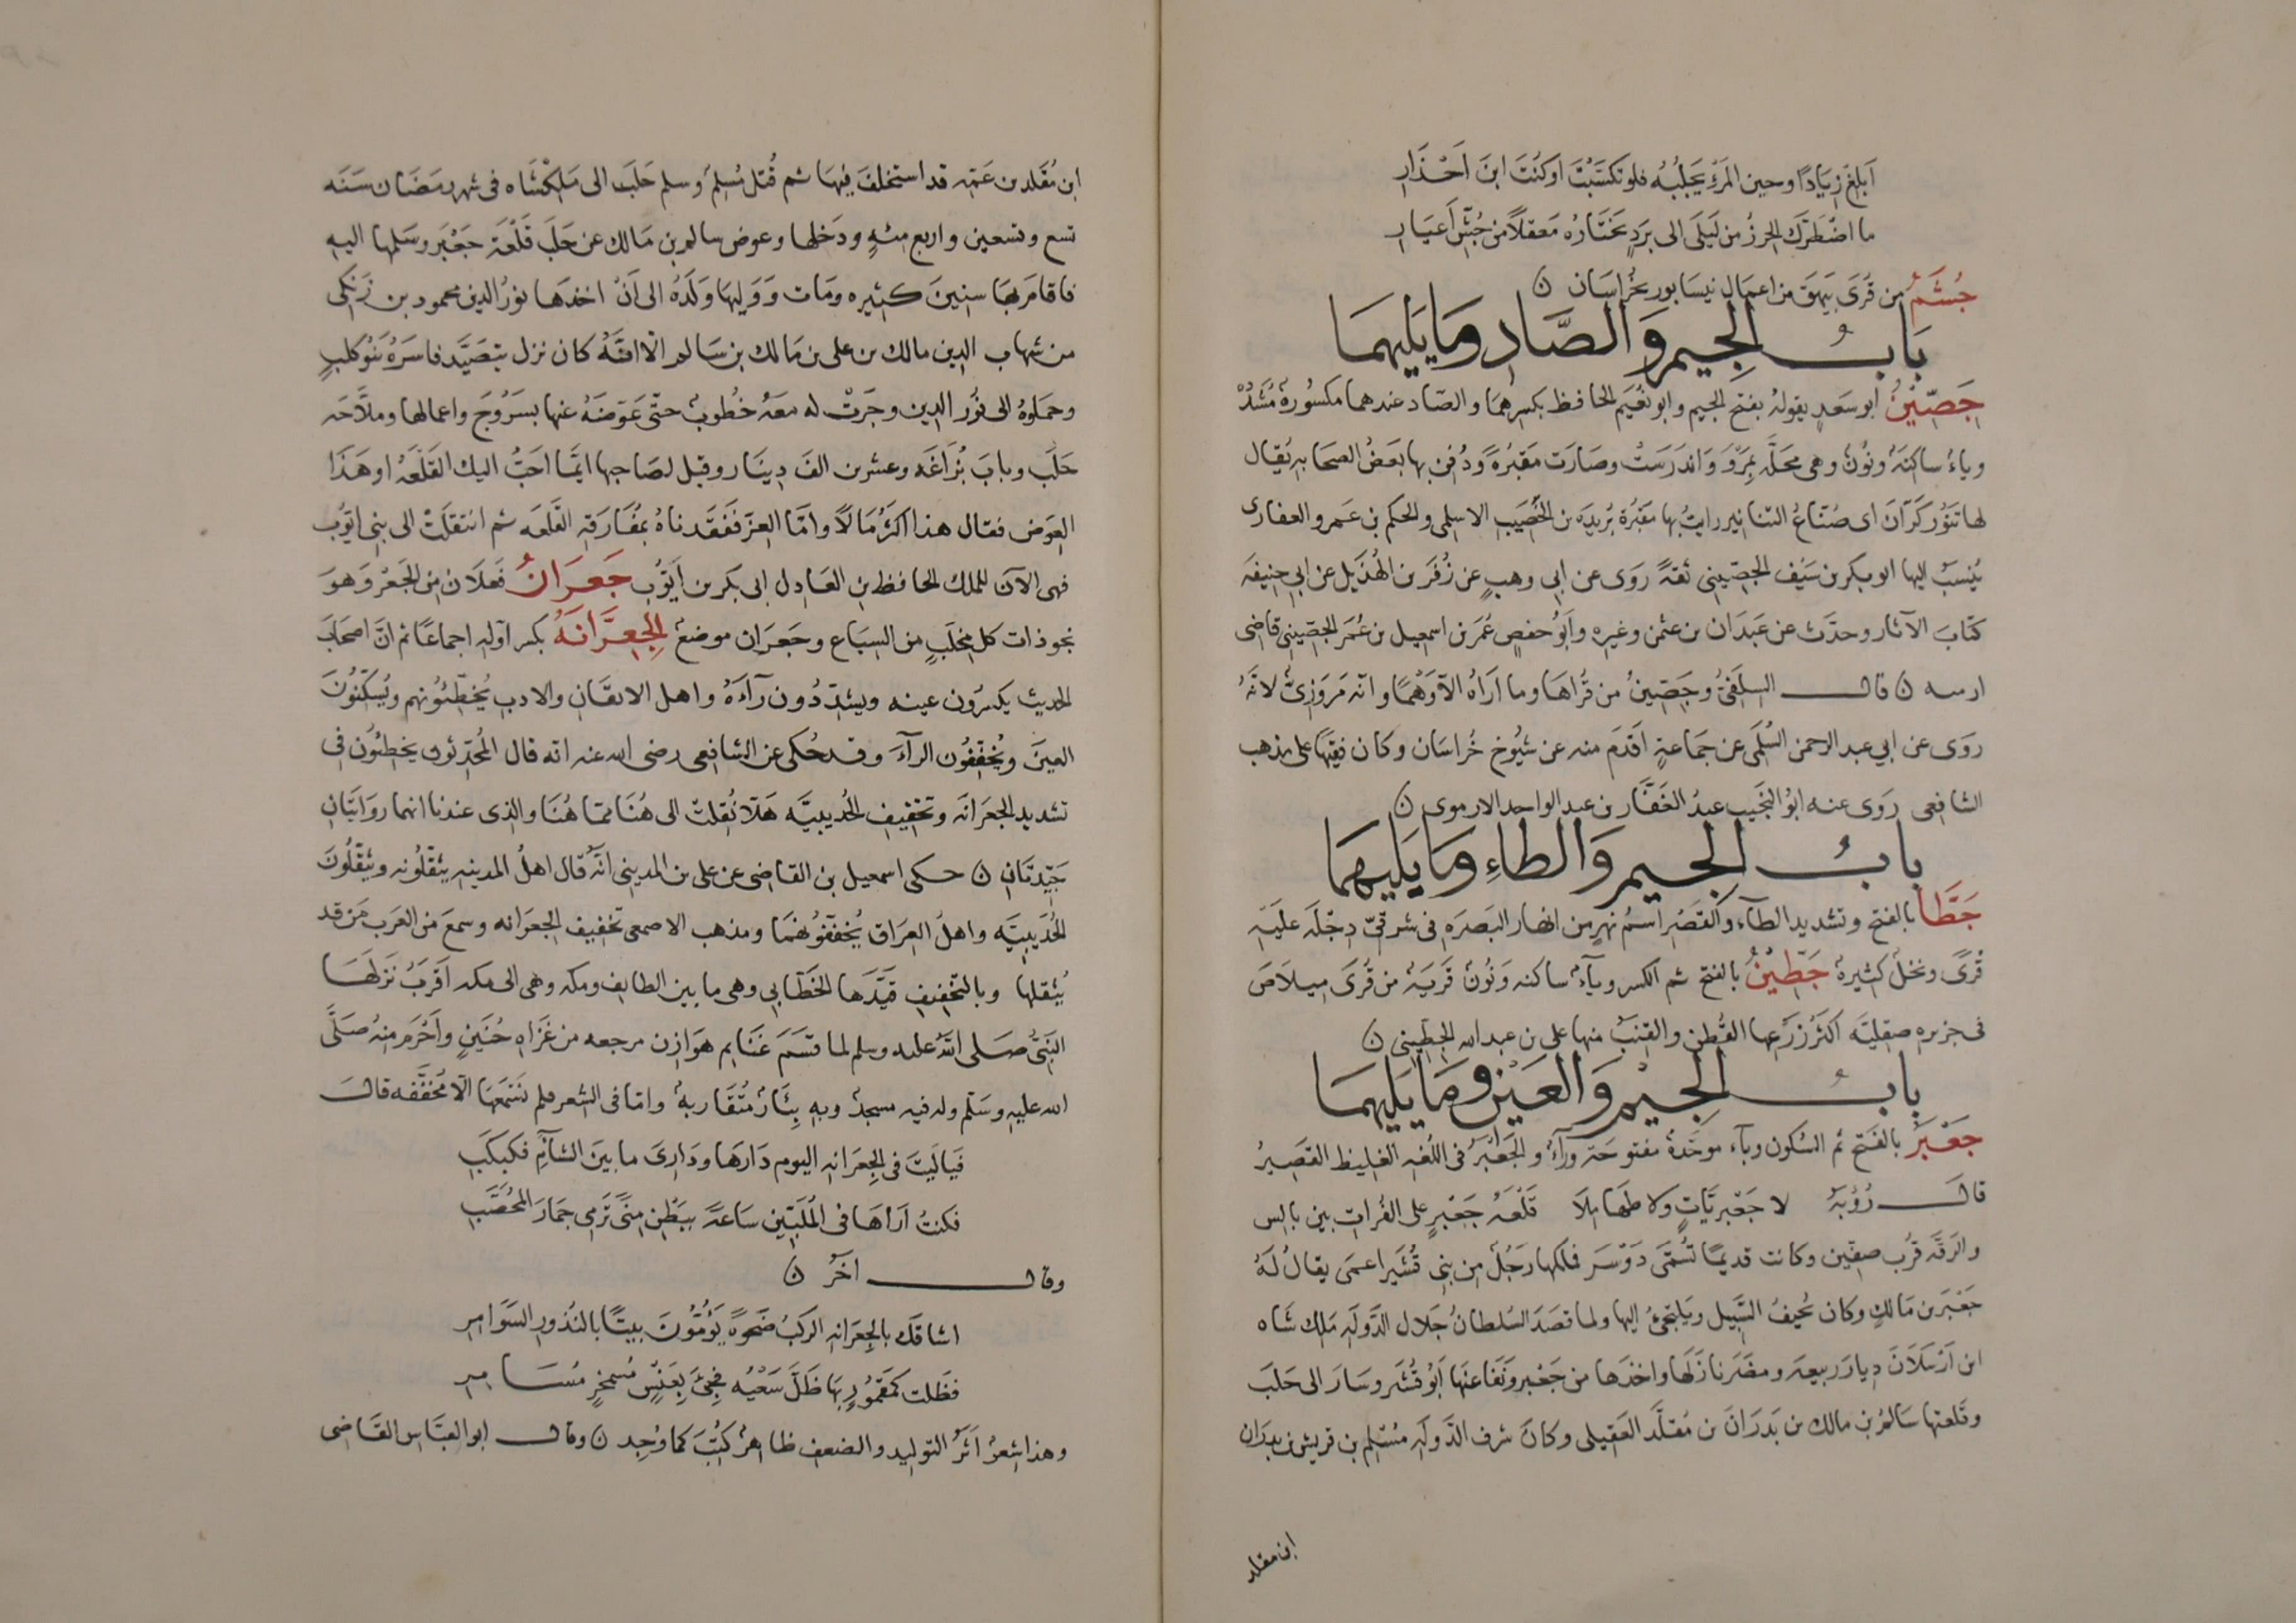 اَبلغ زيَادًا وحين المرَءِ يَجلبُهُ فلو تكسَّبْتَ اَوكنْتَ ابنَ اَحْذارِ
ما اضْطَرَّكَ الحرزُ من لَيلَى الى بَرَدٍ تَختَارُهُ مَعقلًا من جُشِّ اَعيَارِ
جُشَمُ من قُرَى بَيهَقَ من اعمَالِ نيسَابور بخُراسَان ن
بَابُ الجِيمِ وَالصَّادِ وَمَا يَليهمَا
جَصّينُ ابو سَعدٍ يقولهُ بفتح الجيم وابو نُعَيم الحافظ بكسرهمَا والصّاد عندهما مكسُورةٌ مُشَدَّدْ
وياءٌ ساكنَةٌ ونُونٌ وهى محَلَّه بِمَرْوَ وَاندَرَسَتْ وصَارَت مَقبُرَةً وَدُفن بها بعَضُ الصحَابه يُقال
لها تَنوُّر كَرّانَ اى صُنّاعُ التنانير رايتُ بها مقبُرة بُريدَه بن الحُصَيب الاسلمى والحكم بن عَمرو الغفارى
يُنسبُ اليها ابوبكر بن سَيف الجصّينى ثقةً رَوى عن ابى وهبٍ عن زُفَر بن الهُذَيل عن ابى حنيفَه
كتابَ الآثار وحدَّث عن عَبدَان بن عثمن وغيره وابُو حفصٍ عُمَر بن اسمعيل بن عُمَر الجصّينى قاضى
ارميه ن قال السِلَفىُّ وجَصّينُ من قُراهَا وما اَرَاهُ الّا وَهْمًا وانّه مَروَزىٌّ لانّهُ
رَوَى عن ابي عبد الرحمن السُلَمى عن جَماعةٍ اَقدَم منه عن شيُوخ خُراسَان وكان فقيهًا على مذهب
الشافعى رَوى عنه ابوُ النجَيب عبدُ الغفَّار بن عبد الواحد الارموى ن
بابُ الجِيم وَالطاءِ وَمَا يَليهِمَا
جَطَّا بالفتح وتشديد الطآء والقصَر اسمُ نهرٍ من انهار البَصرَه فى شرقىّ دِجلَه علَيه
قُرًى ونخلٌ كثيرةٌ جَطّينُ بالفتح ثم الكسر ويآءٌ ساكنه ونُونٌ قريَهٌ من قُرَى ميلاصَ
فى جزيره صقليَّه اكثرُ زرعها القُطن والقنب منها على بن عبد الله الجطّينى ن
بابُ الجِيْمِ وَالعَيْن وَمَا يَليهمَا
جَعْبَرُ بالفتح ثم السُكون وبآء موحّدةٌ مفتوحَة ورآءٌ والجَعْبَرُ فى اللُغه الغليظ القصَيرُ
قالَ رُؤبَةُ لا جَعْبرَيّاتٍ ولا طهَامِلَا قلْعَهُ جَعْبَرٍ على الفُرات بين بالس
والرَقّه قُرب صفّين وكانت قديمًا تُسَمَّى دَوْسَرَ فملكها رَجُلٌ من بنى قُشَير اعمَى يقالُ لَهُ
جَعْبَر بن مَالكٍ وكان يُخيفُ السَّبيل ويلتجئ اليها ولما قصَدَ السُلطانُ جَلال الدَولَه مَلك شَاه
ابن اَرسَلانَ ديارَ ربيعه ومضَر نازَلَها واخذهَا من جَعْبر ونَفَا عنهَا بَنُو قُشَير وسَارَ الى حَلَبَ
وقَلعتها سَالمُ بن مالك بن بَدرَانَ بن مُقلَّد العَقيلى وكانَ شرف الدَولَه مُسْلم بن قريش بن بدرَان
ابن مقلد
ابن مُقَلد بن عَمّه قد استخلفَ فيهَا ثم قُتل مُسلمُ وسلم حَلَبَ الى مَلِكشَاه فى شهر رمَضَان سَنَه
تسع وتسعين واربع مئهٍ ودَخلها وعوض سالمر بن مَالك عن حَلَب قَلْعَه جَعْبَر وسَلمها اليهِ
فاقامَ بهَا سنينَ كثيره ومَات ووَليهَا وَلَدُهُ الى اَنْ اخذهَا نورُ الدين محمود بن زَنكى
من شهاب الدين مالك بن على بن مَالك بن سَالم لانّهُ كان نزل يتصَيَّد فاسَرَهُ بَنوُ كلبٍ
وحمَلوهُ الى نُور الدين وجَرَتْ له معَهُ خُطوبٌ حتّى عَوّضَهُ عنها بسَرُوجَ واعمالها وملّاحَه
حَلَب وبابَ بُزاغَه وعشرين الفَ دينَار وقيل لصَاحبها ايّمَا احَبُّ اليك القَلْعَهُ او هَذَا
العِوَض فقال هذا اكثرُ مَالًا وامّا العِزّ فَفَقَدناهُ بمُفَارَقه القَلعَه ثم انتقلَتْ الى بنى ايّوُب
فهى الآنَ للملك الحافظ بن العَادل ابى بكر بن اَيوُّب جَعرَانُ فَعلَان من الجَعْرِ وَهوَ
نجو ذات كل مِخلَبٍ من السبَاع وجَعرَان موضعٌ الجِعِرَّانَهُ بكسر اوّله اجماعًا ثم انَّ اصحَابَ
الحديث يكسرُون عينه ويشدّدُون رآءَهُ واهل الاتقَان والادب يُخطّئونهم ويُسَكّنُونَ
العينَ ويُخفّفُون الرآءَ وقد حُكى عن الشافعى رضى الله عنه انّه قال المُحدّثون يخطئُون فى
تشديد الجعرَانَه وتخفيف الحُديبيَّه هَلّا نُقلتْ الى هُنَا ممّا هُنَا والذى عندنا انهما روَايتَان
جَيّدتَان ن حكى اسمعيل بن القاضى عن على بن المدينى انّه قال اهلُ المدينه يثقّلُونه ويثقّلُونَ
الحُدَيبيَّه واهلُ العرَاق يُخفّفوُنهمَا ومذهب الاصمعى تخفيف الجعرَانه وسمعَ من العَرب مَن قد
يُثقلها وبالتخفيف قيَّدَهَا الخَطّابى وهى ما بين الطايف ومكه وهى الى مكه اَقربُ نَزلهَا
النَبىُّ صَلى اللهُ عليه وسلم لما قسَّمَ غنَايم هوَازن مرجعه من غزَاه حُنَينٍ واَحْرَم منهُ صَلَّى
الله عليه وسَلّم وله فيه مسجدٌ وبه بِئَارٌ مُتَقَاربهٌ وامّا فى الشعر فلم نَسْمَعهَا الّا مُخَفَّفه قالَ
فَيا لَيْتَ فى الجِعرَانه اليوم دَارهَا ودَارىَ ما بينَ الشآم فكبكَبِ
فكنتُ اَراهَا فى المُلَبّين سَاعَةً ببَطْن مِنًى تَرمى جمَارَ المُحَصَّبِ
وقال اخَرُ ن
اشاقكَ بالجِعرَانه الركبُ ضَحوَةً يَؤُمّونَ بيتًا بالنُذور السَوَامِرِ
فظَلت كمَقمُورٍ بهَا ظَلَّ سَعْيُه فجىَْ بِعَنْسٍ مُسمَخرٍ مُسَامِرِ
وهذا شعرُ اَثَرُ التوليد والضعف ظاهرٌ كُتِبَ كما وُجِد ن وقال ابو العبَّاس القَاضى